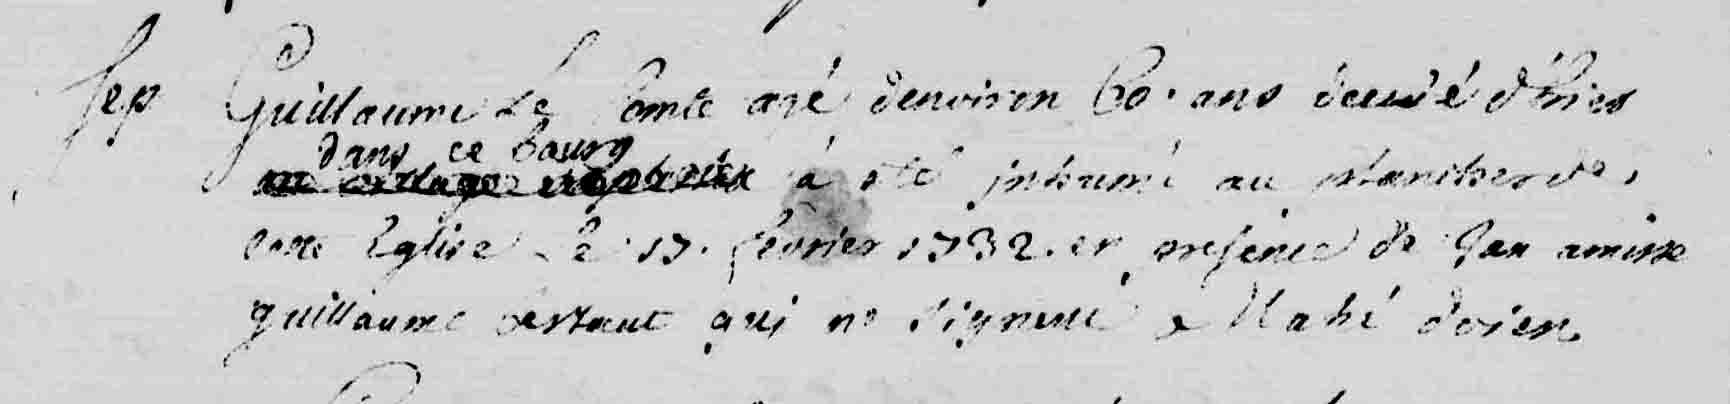 sep Guillaume Le Comte agé denviron 60. ans decedé d'hier
dans ce bourg
à eté inhumé au cimitiere de
cette Eglise le 17. fevrier 1732. en presence de Jan
guillaume qui ne signent Mahé doien